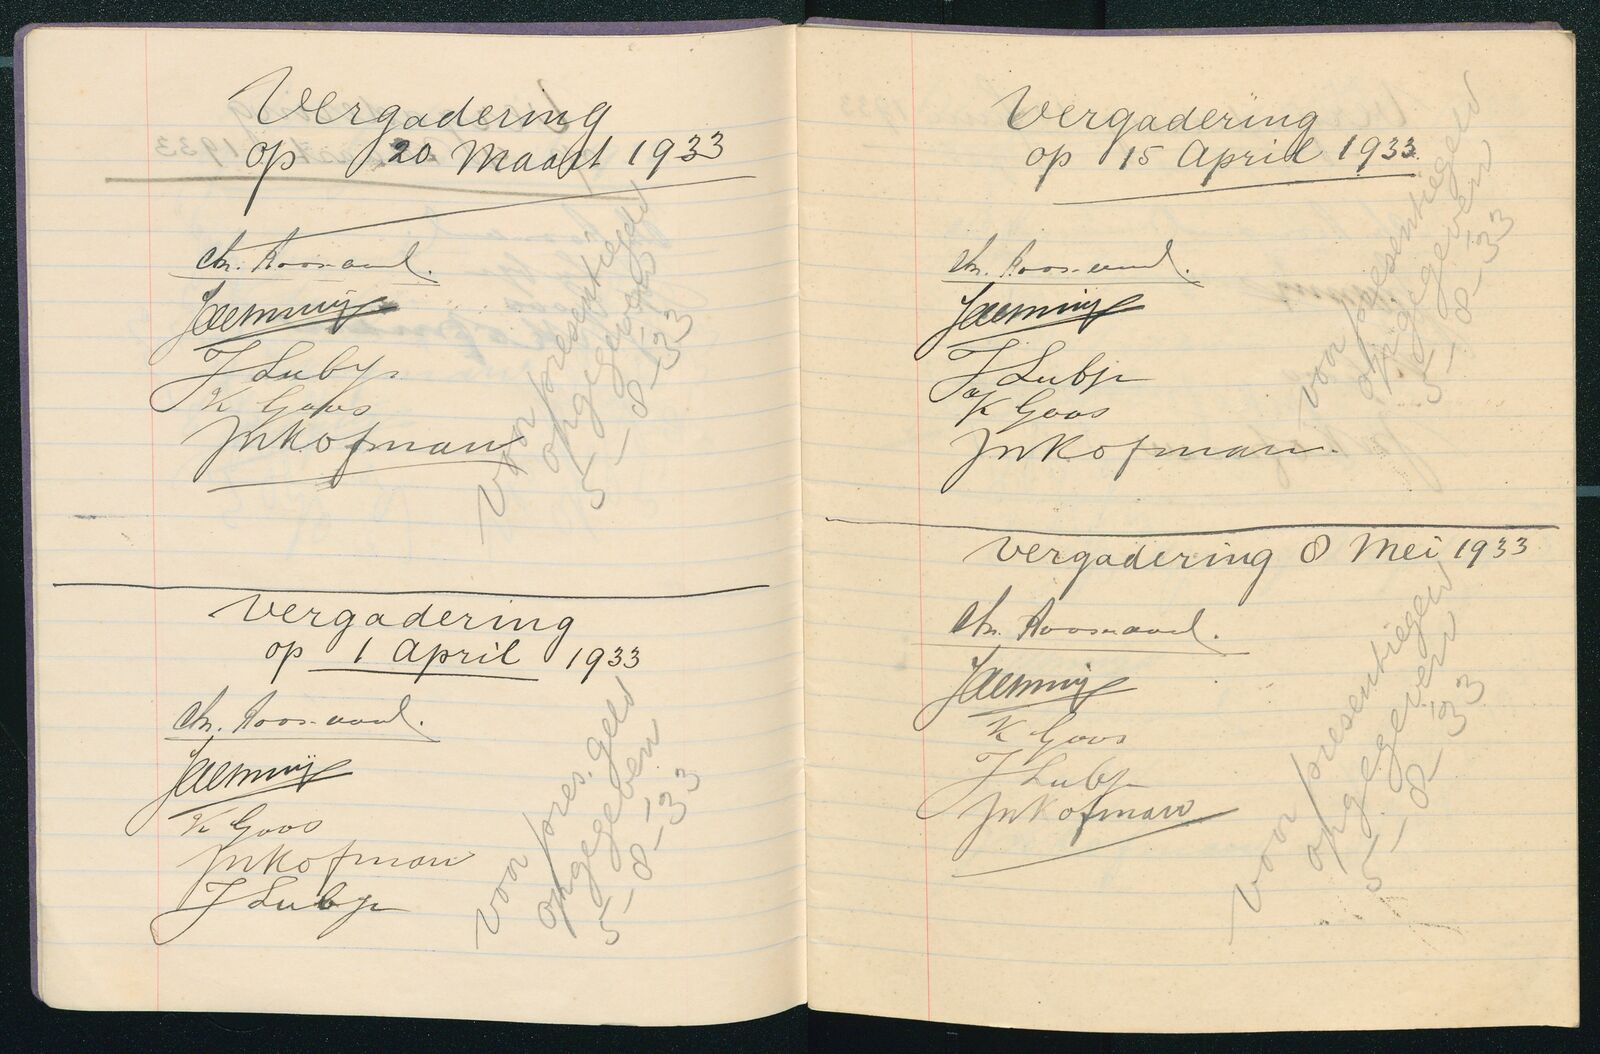 Vergadering
op 20 Maart 1933
Chr. Roosnaad.
J Lubje
K Goos
JMKofman
voor presentiegeld
opgegeven
5-8-'33
Vergadering
op 1 April 1933
Chr. Roosnaad.
K Goos
JMKofman
J Lubje
voor pres. geld
opgegeben
5-8-'33
Vergadering
op 15 April 1933.
Chr. Roosnaad.
J Lubje
K Goos
JMKofman.
voor presentiegeld
opgegeven
5-8-'33
Vergadering 8 Mei 1933
Chr. Roosnaad.
K Goos
J Lubje
JMKofman
voor presentiegeld
opgegeven
5-8-'33